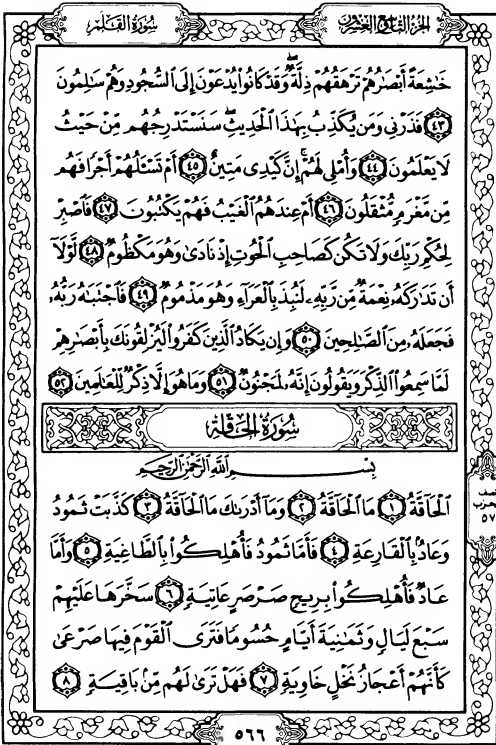 سُورَةُ القَلَمِ
الجُزْءُ التَّاسِعُ وَالعِشْرُونَ
خَٰشِعَةً أَبْصَٰرُهُمْ تَرْهَقُهُمْ ذِلَّةٌۖ وَقَدْ كَانُوا۟ يُدْعَوْنَ إِلَى ٱلسُّجُودِ وَهُمْ سَٰلِمُونَ
٤٣ فَذَرْنِى وَمَن يُكَذِّبُ بِهَٰذَا ٱلْحَدِيثِۖ سَنَسْتَدْرِجُهُم مِّنْ حَيْثُ
لَا يَعْلَمُونَ ٤٤ وَأُمْلِى لَهُمْۚ إِنَّ كَيْدِى مَتِينٌ ٤٥ أَمْ تَسْـَٔلُهُمْ أَجْرًا فَهُم
مِّن مَّغْرَمٍ مُّثْقَلُونَ ٤٦ أَمْ عِندَهُمُ ٱلْغَيْبُ فَهُمْ يَكْتُبُونَ ٤٧ فَٱصْبِرْ
لِحُكْمِ رَبِّكَ وَلَا تَكُن كَصَاحِبِ ٱلْحُوتِ إِذْ نَادَىٰ وَهُوَ مَكْظُومٌ ٤٨ لَّوْلَآ
أَن تَدَٰرَكَهُۥ نِعْمَةٌ مِّن رَّبِّهِۦ لَنُبِذَ بِٱلْعَرَآءِ وَهُوَ مَذْمُومٌ ٤٩ فَٱجْتَبَٰهُ رَبُّهُۥ
فَجَعَلَهُۥ مِنَ ٱلصَّٰلِحِينَ ٥٠ وَإِن يَكَادُ ٱلَّذِينَ كَفَرُوا۟ لَيُزْلِقُونَكَ بِأَبْصَٰرِهِمْ
لَمَّا سَمِعُوا۟ ٱلذِّكْرَ وَيَقُولُونَ إِنَّهُۥ لَمَجْنُونٌ ٥١ وَمَا هُوَ إِلَّا ذِكْرٌ لِّلْعَٰلَمِينَ ٥٢
سُورَةُ الحَاقَّةِ
بِسْمِ ٱللَّهِ ٱلرَّحْمَٰنِ ٱلرَّحِيمِ
ٱلْحَآقَّةُ ١ مَا ٱلْحَآقَّةُ ٢ وَمَآ أَدْرَىٰكَ مَا ٱلْحَآقَّةُ ٣ كَذَّبَتْ ثَمُودُ
وَعَادٌۢ بِٱلْقَارِعَةِ ٤ فَأَمَّا ثَمُودُ فَأُهْلِكُوا۟ بِٱلطَّاغِيَةِ ٥ وَأَمَّا
عَادٌ فَأُهْلِكُوا۟ بِرِيحٍ صَرْصَرٍ عَاتِيَةٍ ٦ سَخَّرَهَا عَلَيْهِمْ
سَبْعَ لَيَالٍ وَثَمَٰنِيَةَ أَيَّامٍ حُسُومًا فَتَرَى ٱلْقَوْمَ فِيهَا صَرْعَىٰ
كَأَنَّهُمْ أَعْجَازُ نَخْلٍ خَاوِيَةٍ ٧ فَهَلْ تَرَىٰ لَهُم مِّنۢ بَاقِيَةٍ ٨
نصف
الحزب
٥٧
٥٦٦